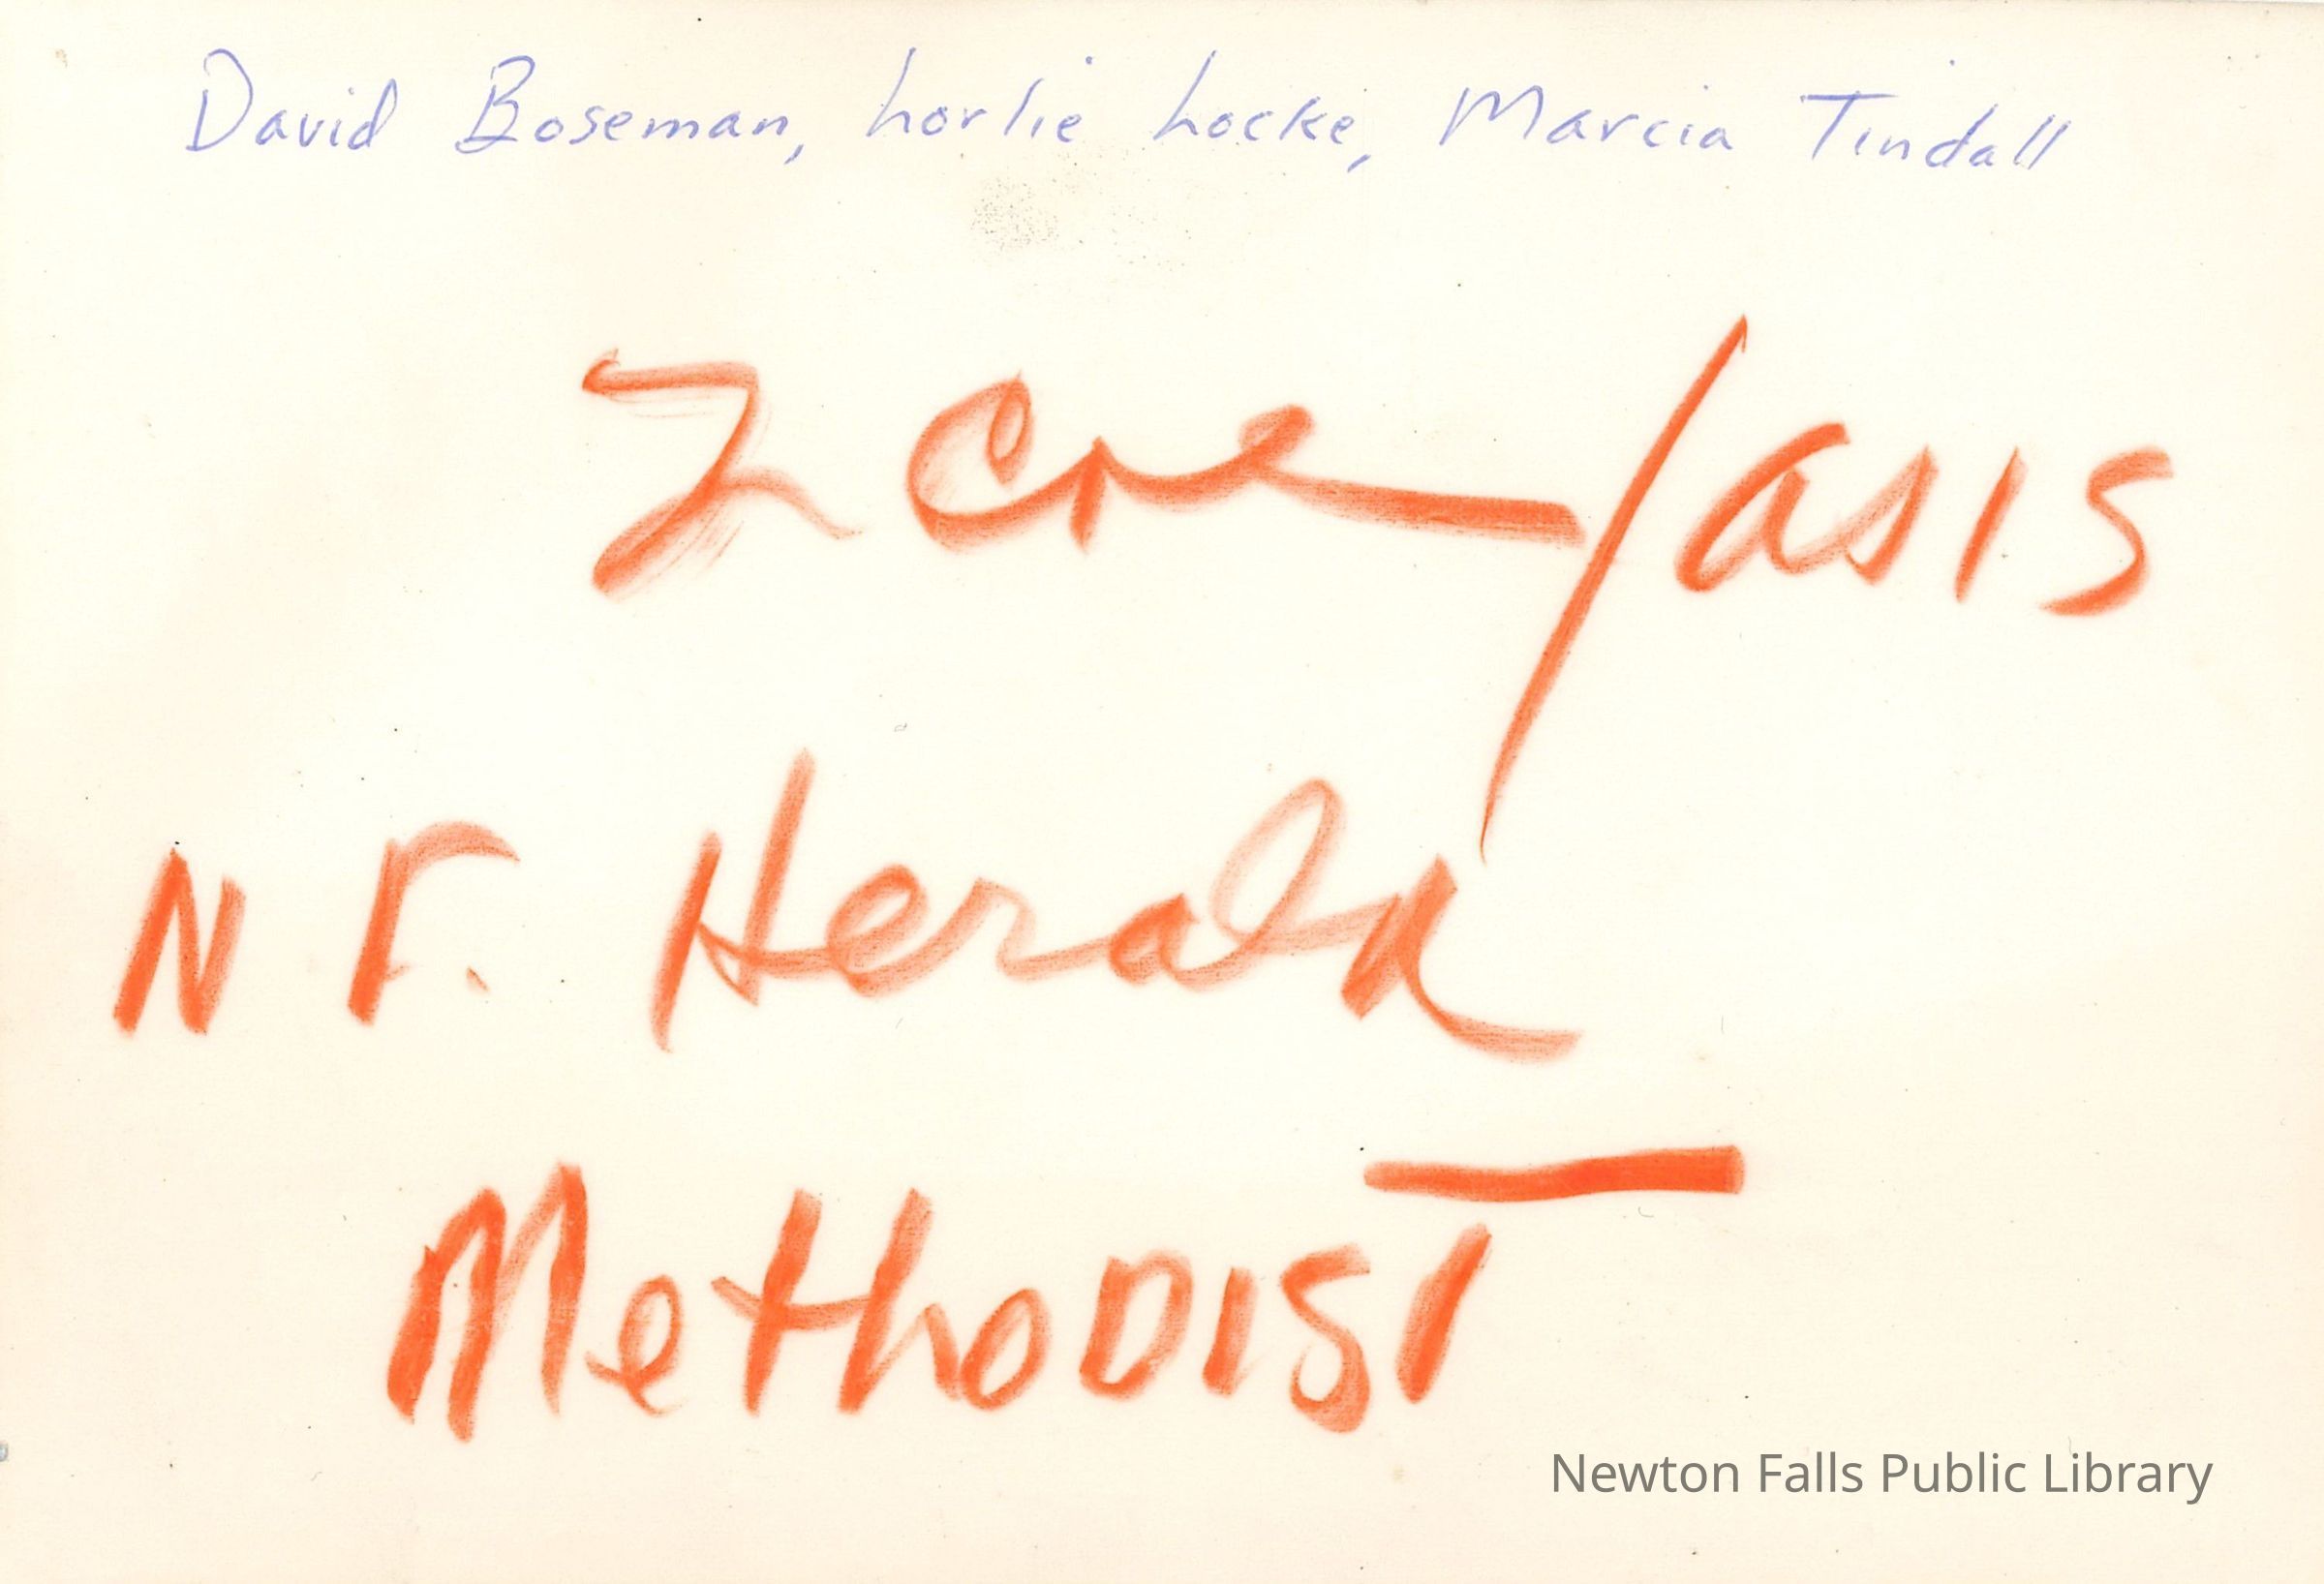 David Boseman, Lorlie Locke, Marcia Tindall
2 Col / as is
N F. Herald
Methodist
Newton Falls Public Library